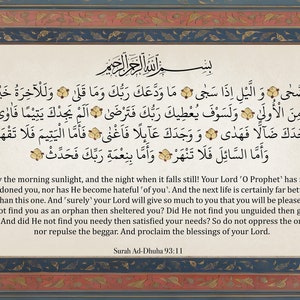 بِسْمِ اللَّهِ الرَّحْمَٰنِ الرَّحِيمِ
وَالَّيْلِ إِذَا سَجَىٰ مَا وَدَّعَكَ رَبُّكَ وَمَا قَلَىٰ وَلَلْآخِرَةُ
مِنَ الْأُولَىٰ وَلَسَوْفَ يُعْطِيكَ رَبُّكَ فَتَرْضَىٰ أَلَمْ يَجِدْكَ يَتِيمًا
ضَالًّا فَهَدَىٰ وَوَجَدَكَ عَائِلًا فَأَغْنَىٰ فَأَمَّا الْيَتِيمَ فَلَا
وَأَمَّا السَّائِلَ فَلَا تَنْهَرْ وَأَمَّا بِنِعْمَةِ رَبِّكَ فَحَدِّثْ
the morning sunlight, and the night when it falls still! Your Lord 'O Prophet' has
you, nor has He become hateful 'of you'. And the next life is certainly far
than this one. And 'surely' your Lord will give so much to you that you will be
find you as an orphan then sheltered you? Did He not find you unguided then
And did He not find you needy then satisfied your needs? So do not oppress the
nor repulse the beggar. And proclaim the blessings of your Lord.
Surah Ad-Dhuha 93:11